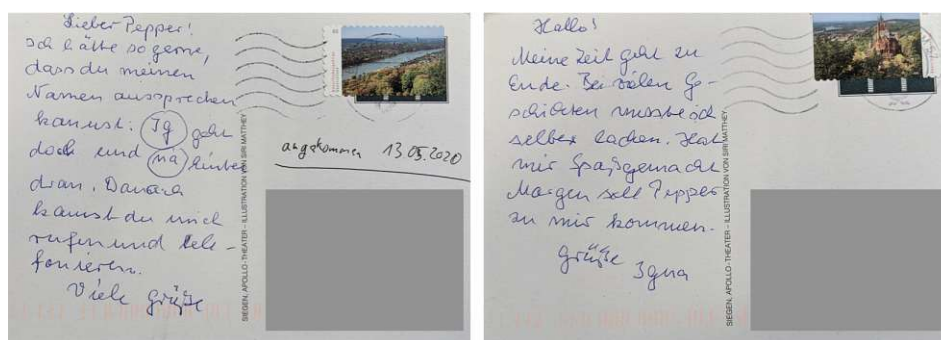 Lieber Pepper!
Ich hätte so gerne,
dass du meinen
Namen aussprechen
kannst. Ig geht
doch und na hinten
dran. Danach
kannst du mich
rufen und tele-
fonieren.
Viele Grüße
angekommen 13.05.2020
SIEGEN, APOLLO-THEATER – ILLUSTRATION VON SIRI MATTHEY
Hallo!
Meine Zeit geht zu
Ende. Bei vielen Ge-
schichten musste ich
selber lachen. Hat
mir Spaß gemacht
Morgen soll Pepper
zu mir kommen.
Grüße
Igna
SIEGEN, APOLLO-THEATER – ILLUSTRATION VON SIRI MATTHEY